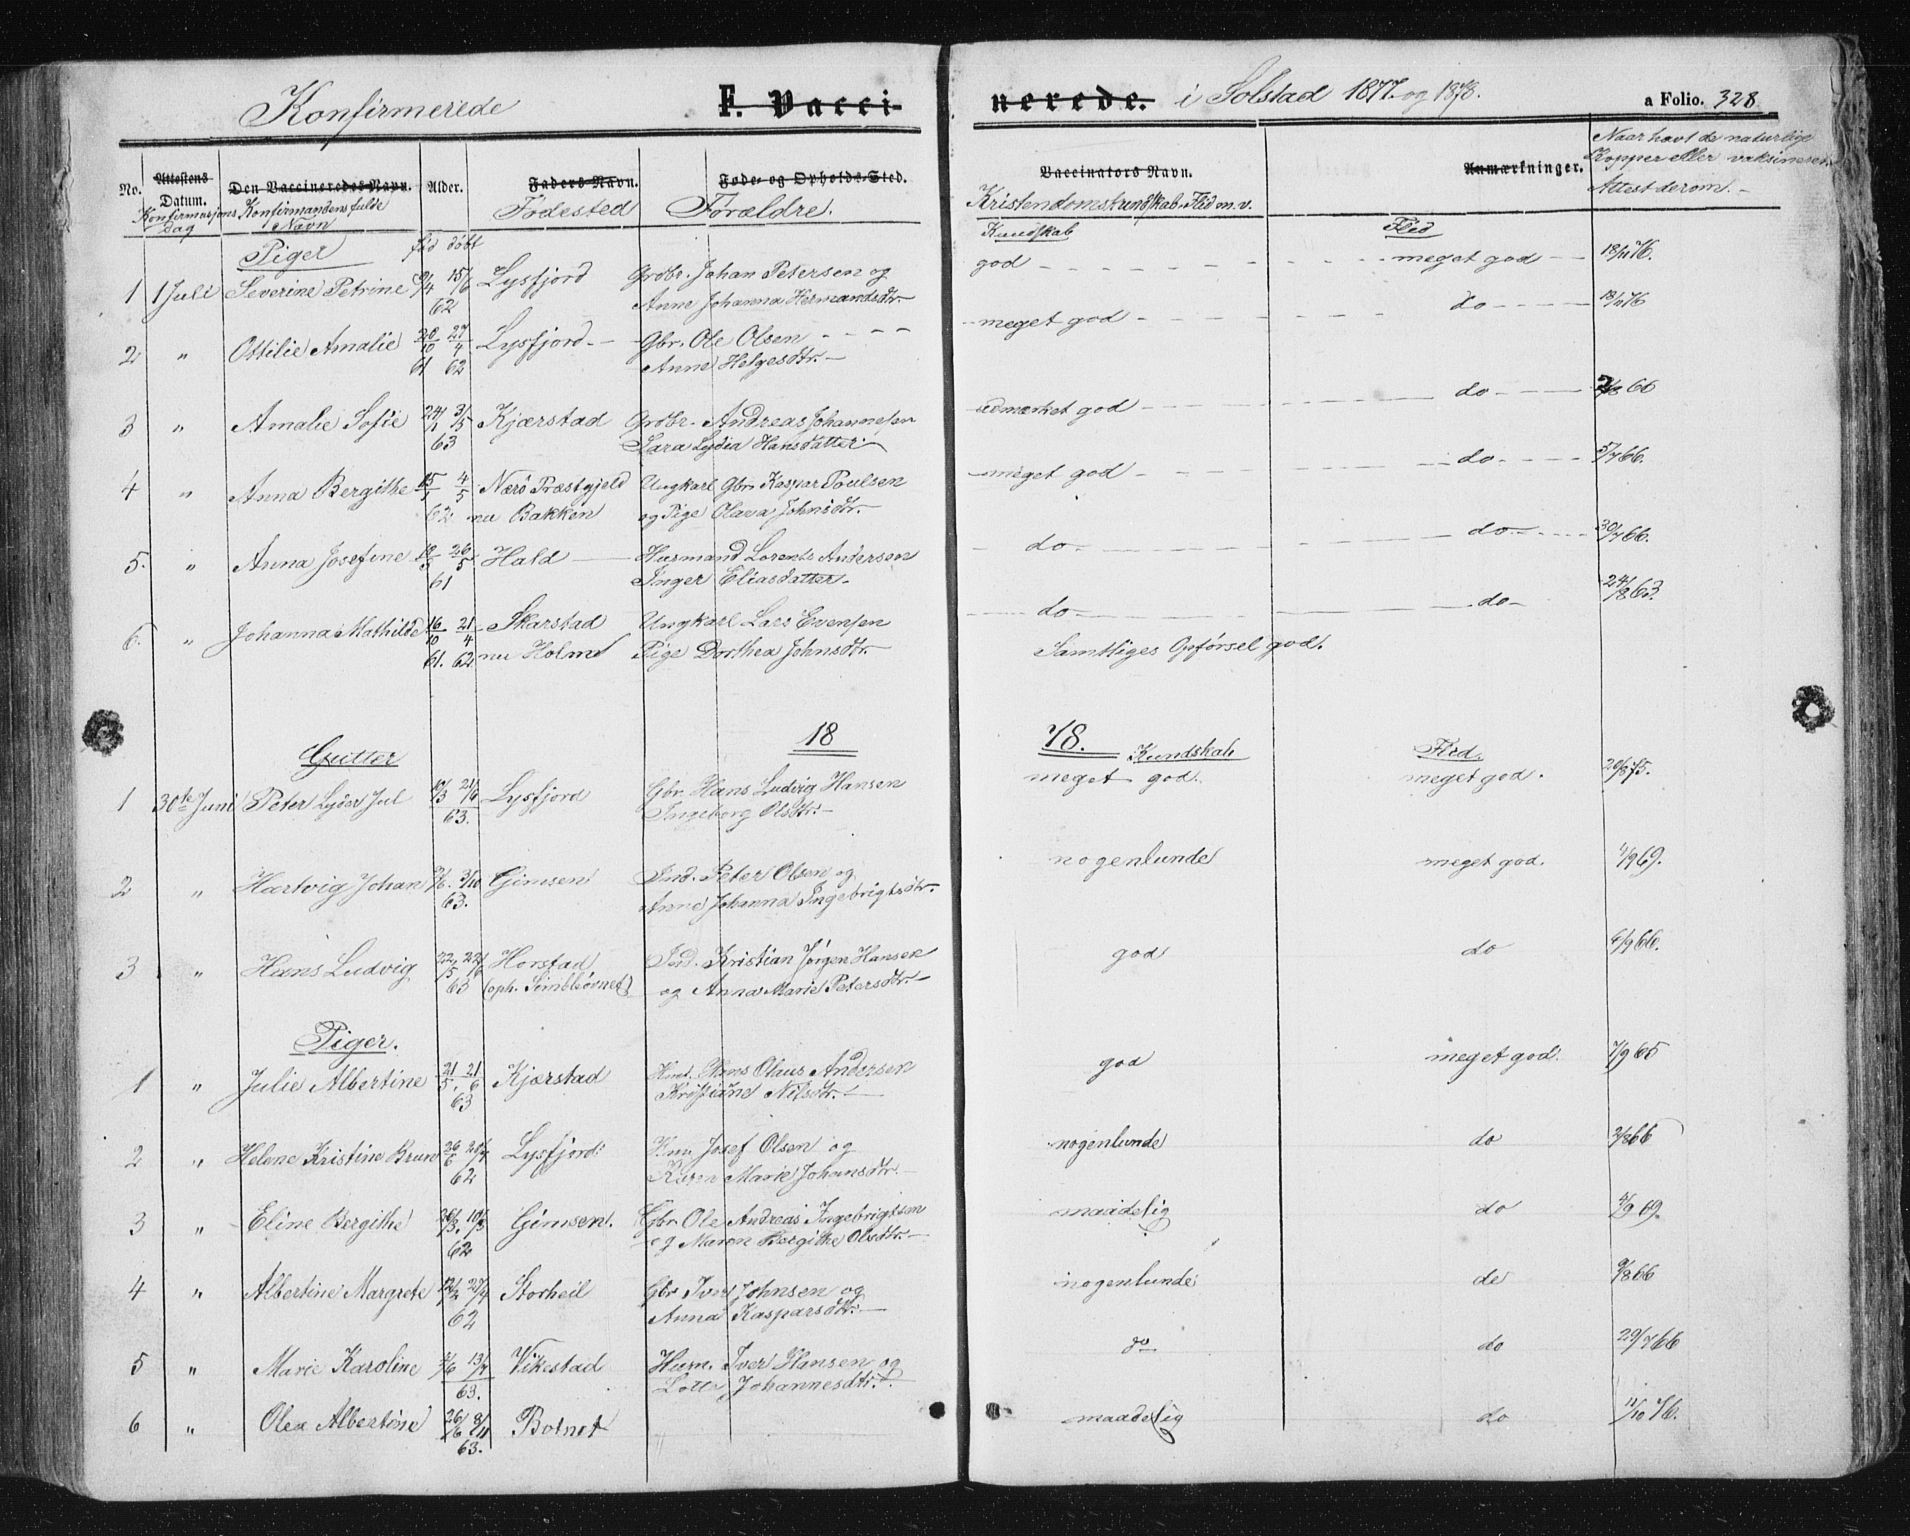 Konfirmerede F. Vaccinerede. i Solstad 1877 og 1878. a Folio. 328
No. Attestens Datum. Den Vaccineredes Navn. Alder. Faders Navn. Føde- og Opholds-Sted. Vaccinators Navn. Anmærkninger.
Konfirmasjons dag Konfirmandens fulde Navn Fødested Forældre. Kristendomskundskab, Flid m. v. Naar havt de naturlige Kopper eller vaksineret. Attest derom.
Piger fød døbt Kundskab Flid
1 1 Juli Severine Petrine 15/6 Lysfjord Grdbr. Johan Petersen og god meget god
62 Anne Johanna Hermandsdtr.
2 " Ottilie Amalie 20/10 27/4 Lysfjord Gbr. Ole Olsen meget god do
61 62 Anne Helgesdtr.
3 " Amalie Sofie 24/1 3/5 Kjærstad Grdbr. Andreas Johannesen udmærket god do
63 Sara Lydia Hansdatter
4 " Anna Bergithe 15/1 4/5 Nærö Præstgjeld Ungkarl Gbr. Kaspar Poulsen meget god do 5/7 66.
62 nu Bakken og Pige Olava Johnsdtr.
5. " Anna Josefine 26/5 Hald Husmand Lorents Andersen do do 30/7 66.
61 Inger Eliasdatter
6. " Johanna Mathilde 16/10 21/4 Skarstad Ungkarl Lars Evensen do do 24/8 63.
61. 62 nu Holm Pige Dorthea Johnsdtr. Samtliges Opførsel god.
18 78.
Gutter Kundskab Flid.
1 30te Juni Peter Lyder Jul 21/6 Lysfjord Gbr. Hans Ludvig Hansen meget god. meget god. 20/8 75.
63. Ingeborg Olsdtr.
2 " Hartvig Johan 3/10 Gimsen Ind. Peter Olsen og nogenlunde meget god. 69.
63. Anne Johanna Ingebrigtsdtr.
3 " Hans Ludvig 22/5 Horstad Ind. Kristian Jørgen Hansen god do 6/9 66.
63 og Anna Marie Petersdtr.
Piger.
1 " Julie Albertine 21/5. 21/6 Kjærstad Hans Olaus Andersen god meget god. 7/9 65
63 Kristiane Nilsdtr.
2 " Helene Kristine Brun 26/6 20/7 Lysfjord Josef Olsen og nogenlunde do 2/8 66
62 Karen Marie Johansdtr.
3 " Eline Bergithe Gimsen. Gbr. Ole Andreas Ingebrigtsen maadelig do 4/9 69.
62 og Maren Bergithe Olsdtr.
4 " Albertine Margrete 12/2 27/4 Storheil Gbr. Iver Johnsen og nogenlunde do 66
62 Anna Kaspersdtr.
5 " Marie Karoline 13/7 Vikestad Husm. Iver Hansen og do do 29/7 66
63. Lotte Johannesdtr.
6 " Olea Albertine 26/6 8/11 Botnet maadelig do 11/10 76.
63.